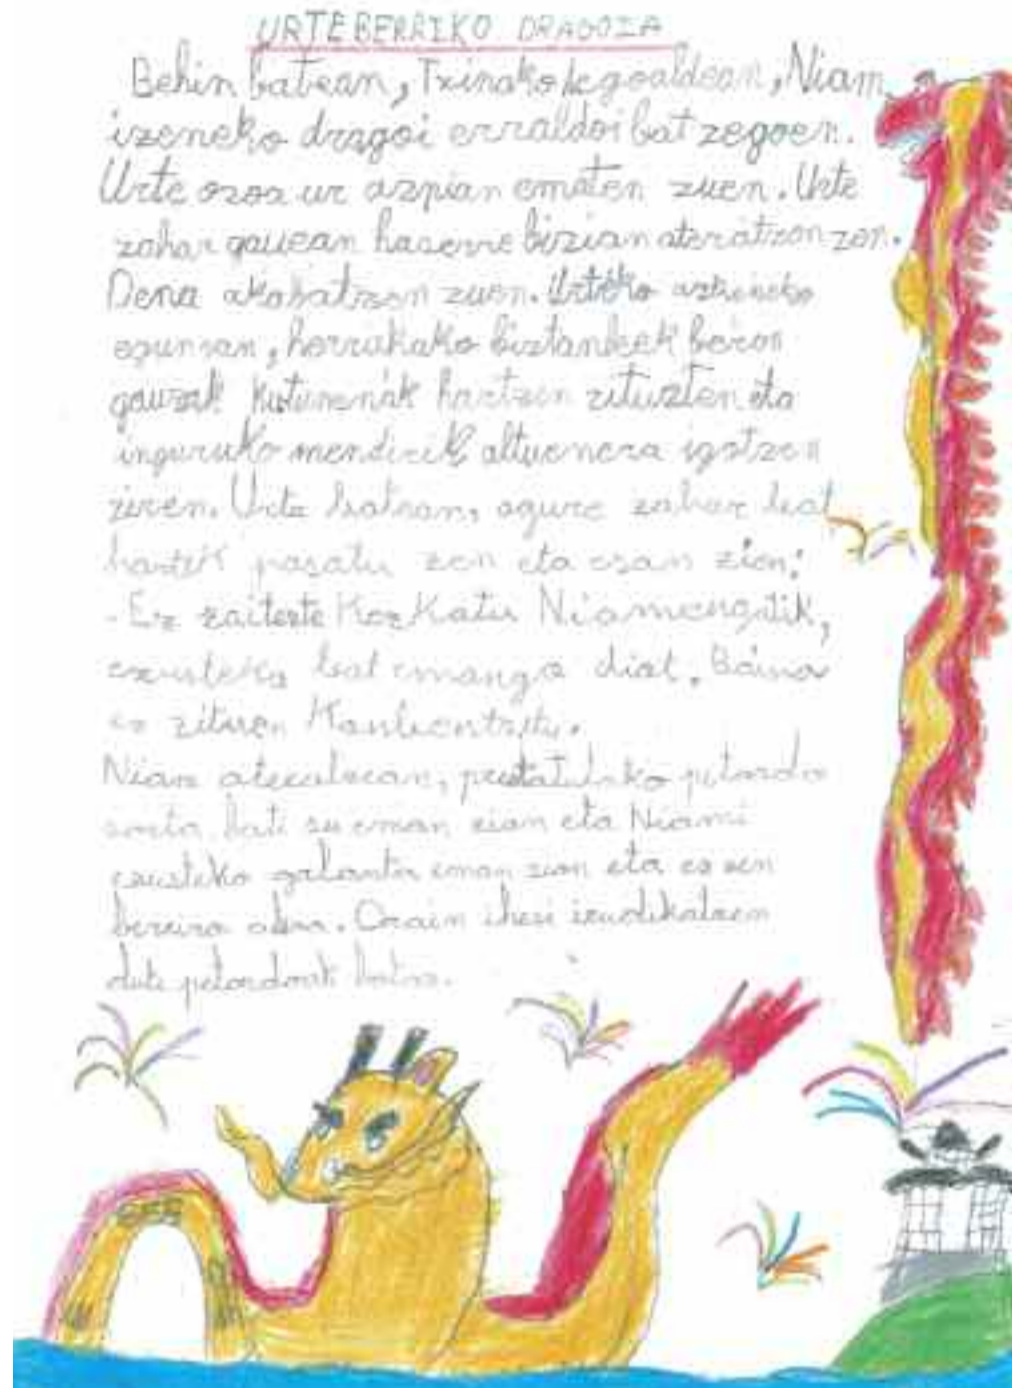 URTEBERRIKO DRAGOIA
Behin batean, Txinako hegoaldean, Niam
izeneko dragoi erraldoi bat zegoen.
Urte osoa ur azpian ematen zuen. Urte
zahar gauean haserre bizian ateratzen zen.
Dena akabatzen zuen. Urteko azkeneko
egunean, herrikako biztanleek beren
gauzak kutunenak hartzen zituzten eta
inguruko mendirik altuenera igotzen
ziren. Urte batean, agure zahar bat
hortik pasatu zen eta esan zien:
- Ez zaitezte kezkatu Niamengatik,
ezusteko bat emango diot. Baina
ez zituen konbentzitu.
Niam ateratzean, prestatutako petardo
sorta bati su eman zion eta Niami
ezusteko galanta eman zion eta ez zen
berriro atera. Orain ihesi irudikatzen
dute petardoak botaz.